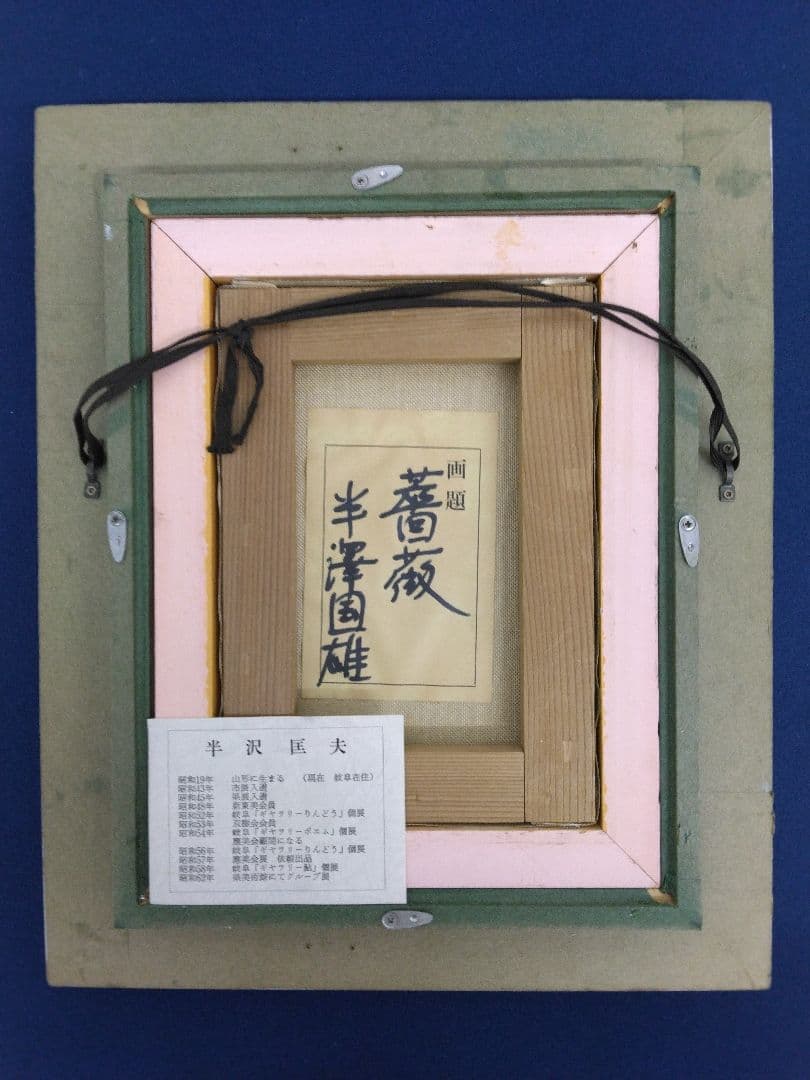 画題
薔薇
半澤国雄
半沢匡夫
昭和19年 山形に生まる (現在 岐阜在住)
昭和43年 市展入選
昭和45年 県展入選
昭和48年 新東美会員
昭和52年 岐阜「ギャラリーりんどう」個展
昭和53年 互樹会会員
昭和54年 岐阜「ギャラリーポエム」個展
恵美会顧問になる
昭和56年 岐阜「ギャラリーりんどう」個展
昭和57年 恵美会展 依頼出品
昭和58年 岐阜「ギャラリー鮎」個展
昭和62年 県美術館にてグループ展